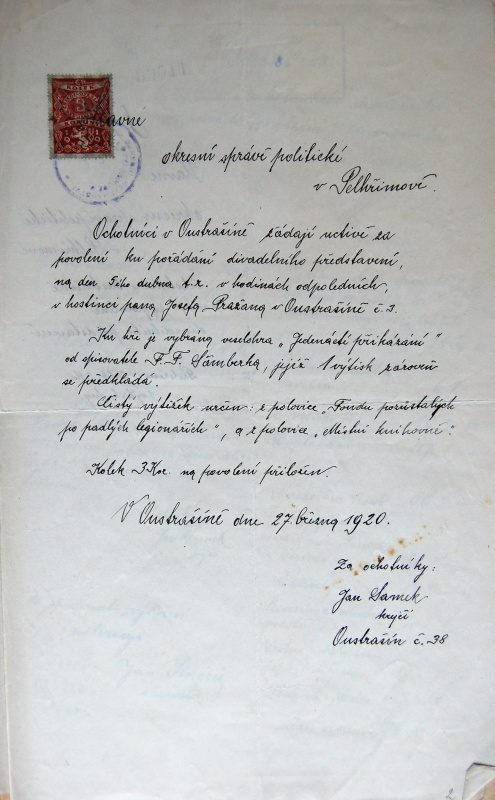 okresní správě politické
v Pelhřimově.
Ochotníci v Oustrašíně žádají uctivě za
povolení ku pořádání divadelního představení,
na den 5tého dubna t.r. v hodinách odpoledních,
v hostinci pana Josefa Pražana v Oustrašíně č.3.
Ku hře je vybrána veselohra „Jedenácté přikázání"
od spisovatele F. F. Šamberka, jejíž 1 výtisk zároveň
se předkládá.
Čistý výtěžek určen: z polovice „Fondu pozůstalých
po padlých legionářích", a z polovice „Místní knihovně".
Kolek 3 Kor. na povolení přiložen.
V Oustrašíně dne 27. března 1920.
Za ochotníky:
Jan Samek
krejčí
Oustrašín č. 38
2